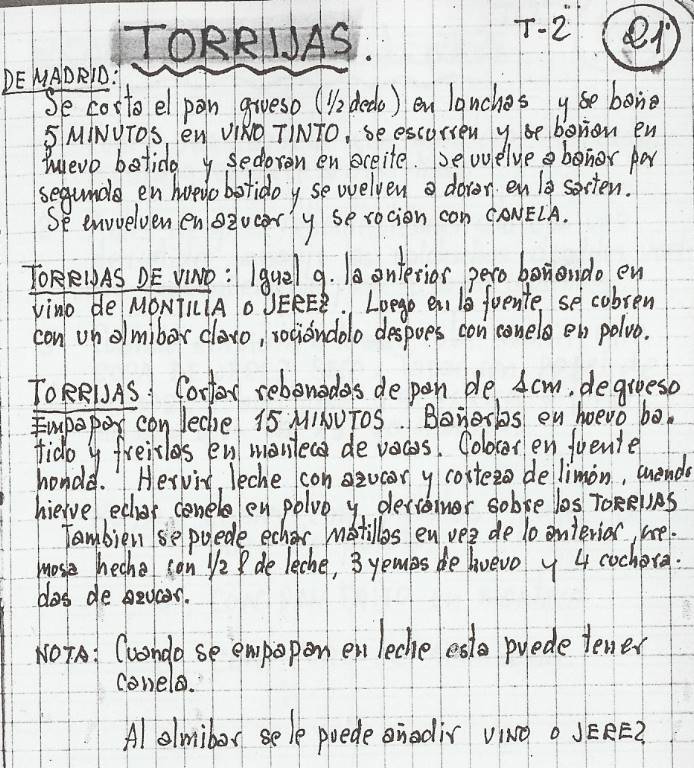 TORRIJAS.
T-2
21
DE MADRID:
Se corta el pan grueso (1/2 dedo) en lonchas y se baña
5 MINUTOS en VINO TINTO, se escurren y se bañan en
huevo batido y se doran en aceite. Se vuelve a bañar por
segunda en huevo batido y se vuelven a dorar en la sarten.
Se envuelven en azucar y se rocian con CANELA.
TORRIJAS DE VINO: Igual q. la anterior pero bañando en
vino de MONTILLA o JEREZ. Luego en la fuente se cubren
con un almibar claro, rociándolo despues con canela en polvo.
TORRIJAS: Cortar rebanadas de pan de 1cm. de grueso
Empapar con leche 15 MINUTOS. Bañarlas en huevo ba-
tido y freirlas en manteca de vacas. Colocar en fuente
honda. Hervir leche con azucar y corteza de limón, cuando
hierve echar canela en polvo y derramar sobre las TORRIJAS
Tambien se puede echar natillas en vez de lo anterior, cre-
mosa hecha con 1/2 l de leche, 3 yemas de huevo y 4 cuchara-
das de azucar.
NOTA: Cuando se empapan en leche esta puede tener
canela.
Al almibar se le puede añadir VINO o JEREZ